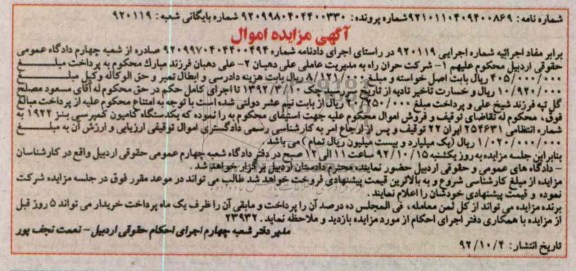 شماره نامه: ۹۲۱۰۱۱۰۴۰۹۴۰۰۸۶۹ شماره پرونده: ۹۲۰۹۹۸۰۴۰۲۴۰۰۳۳۰ شماره بایگانی شعبه: ۹۲۰۱۱۹
آگهی مزایده اموال
برابر مفاد اجرائیه شماره اجرایی ۹۲۰۱۱۹ در راستای اجرای دادنامه شماره ۹۲۰۹۹۷۰۴۰۴۴۰۰۴۹۴ صادره از شعبه چهارم دادگاه عمومی
حقوقی اردبیل محکوم علیهم ۱- شرکت حوران راه به مدیریت عاملی علی دهبان ۲- علی دهبان فرزند مبارک محکوم به پرداخت مبلغ
۴۰۵/۰۰۰/۰۰۰ ریال بابت اصل خواسته و مبلغ ۸/۱۲۱/۰۰۰ ریال بابت هزینه دادرسی و ابطال تمبر و حق الوکاله وکیل مبلغ
۱۰/۹۲۰/۰۰۰ ریال و خسارت تاخیر تادیه از تاریخ سررسید چک ۱۳۹۲/۳/۱۰ تا اجرای کامل حکم در حق محکوم له آقای مسعود مصلح
گل تپه فرزند شیخ علی و پرداخت مبلغ ۲۰/۲۵۰/۰۰۰ ریال از بابت نیم عشر دولتی شده است با توجه به امتناع محکوم علیه از پرداخت مبالغ
فوق، محکوم له تقاضای توقیف و فروش اموال محکوم علیه جهت استیفای محکوم به را نموده که یکدستگاه کامیون کمپرسی بنز ۱۹۲۲ به
شماره انتظامی ۲۵۴۶۳۱ ایران ۲۲ توقیف و پس از ارجاع امر به کارشناسی رسمی دادگستری اموال توقیفی ارزیابی و ارزش آن به مبلغ
۱/۰۲۰/۰۰۰/۰۰۰ ریال (یک میلیارد و بیست میلیون ریال تمام) می باشد.
بنابراین جلسه مزایده به روز یکشنبه ۹۲/۱۰/۱۵ ساعت ۱۱ الی ۱۲ صبح در دفتر دادگاه شعبه چهارم عمومی حقوقی اردبیل واقع در کارشناسان
– دادگاه های عمومی و حقوقی اردبیل حضور نماینده محترم دادستان اردبیل برگزار خواهد شد.
مزایده از مبلغ کارشناسی شروع و به بالاترین قیمت پیشنهادی فروخت خواهد شد طالب می تواند در موعد مقرر فوق در جلسه مزایده شرکت
نموده و قیمت پیشنهادی خودشان را اعلام نمایند.
برنده مزایده می تواند از کل ثمن معامله، فی المجلس ده درصد آن را پرداخت و مابقی آن را ظرف یک ماه پرداخت خریدار می تواند ۵ روز قبل
از مزایده با همکاری دفتر اجرای احکام از مورد مزایده بازدید و ملاحظه نماید. ۲۳۹۳۲
مدیر دفتر شعبه چهارم اجرای احکام حقوقی اردبیل – نعمت نجف پور
تاریخ انتشار: ۹۲/۱۰/۴